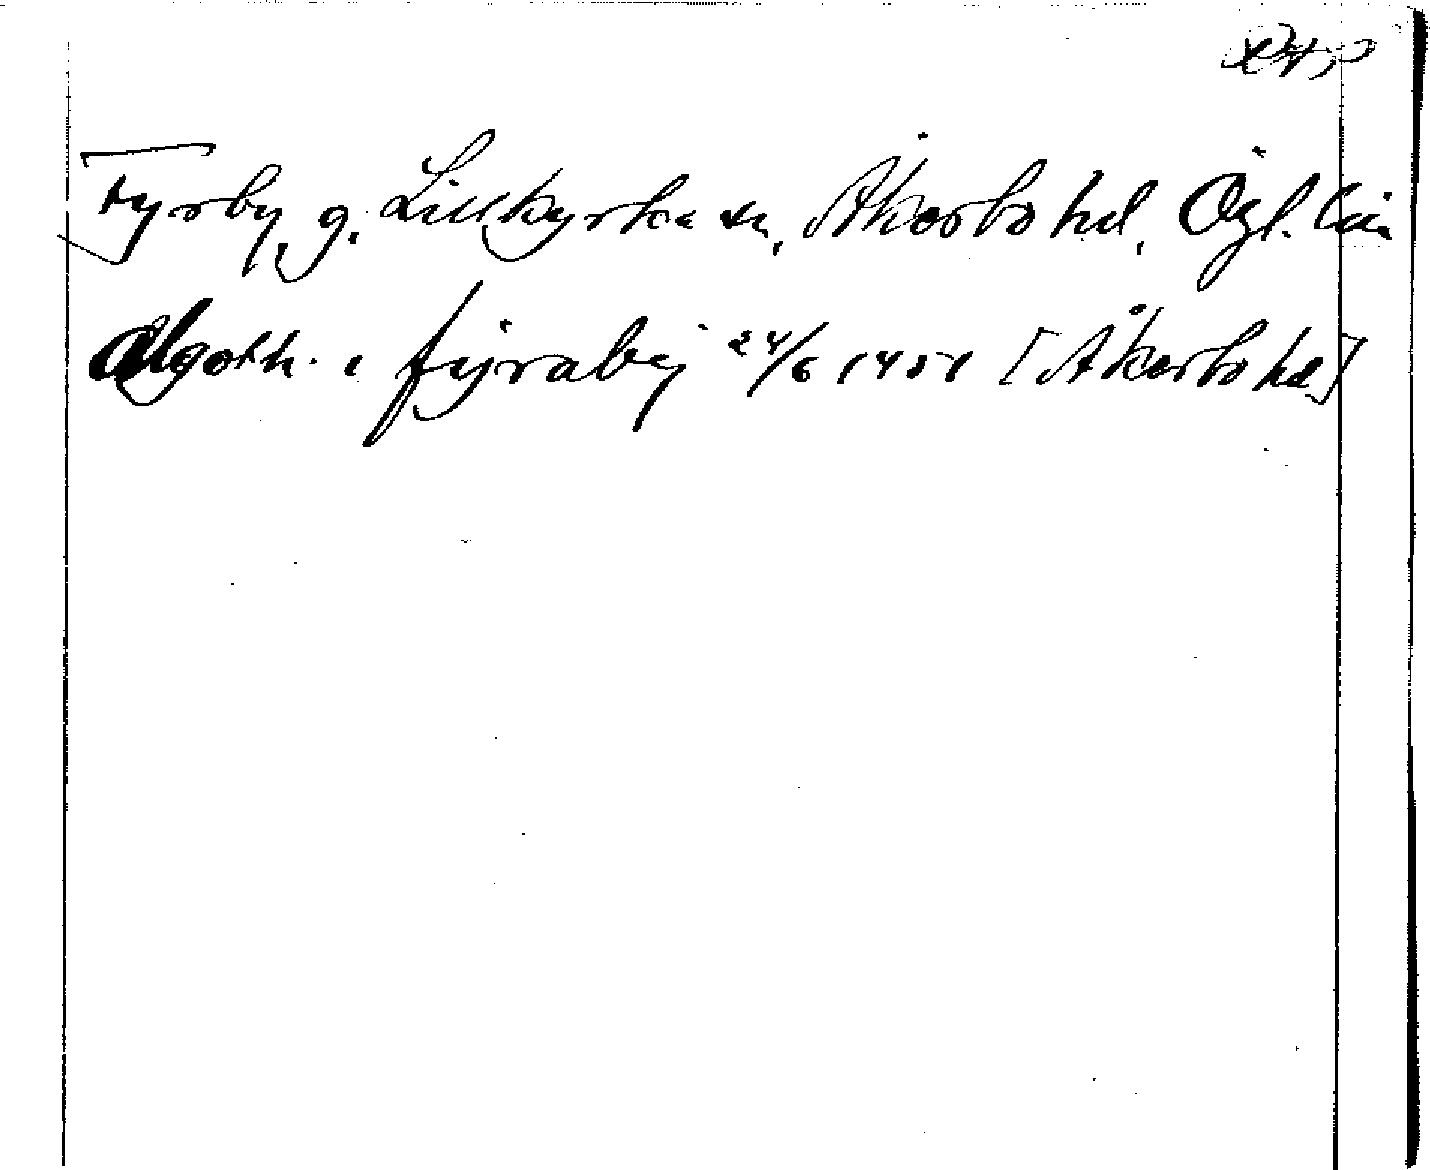 Fyrby, g. Lillkyrka sn, Åkerbo hd, Ögl. län
Algoth. i fyraby 24/6 1451 [Åkerbo hd]